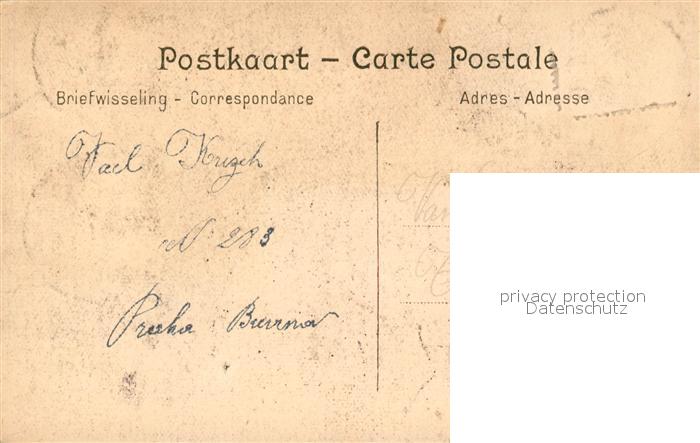 Postkaart – Carte Postale
Briefwisseling - Correspondance
Adres - Adresse
Vacl Krizch
N 283
Praha Bucrna
privacy protection
Datenschutz